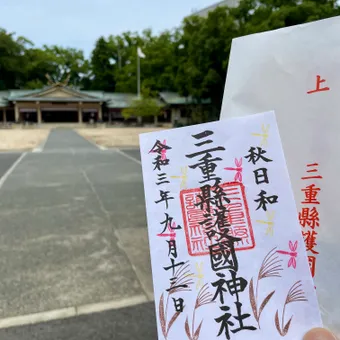 秋日和
三重縣護國神社
令和三年九月十三日
上
三重縣護